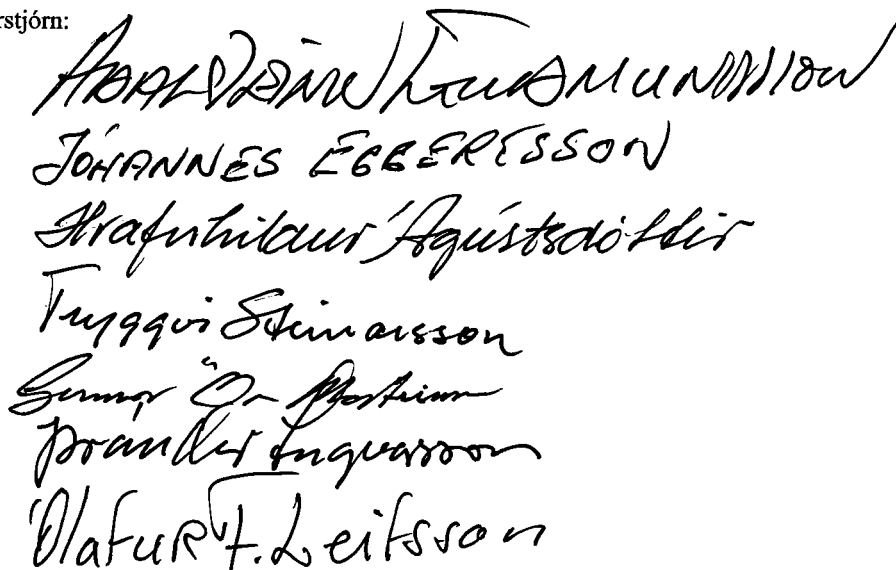 rstjórn:
AÐALSTEINN GUÐMUNDSSON
JÓHANNES EGGERTSSON
Hrafnhildur Ágústsdóttir
Tryggvi Steinarsson
Gunnar Örn
Þrándur Ingvarsson
Ólafur F. Leifsson